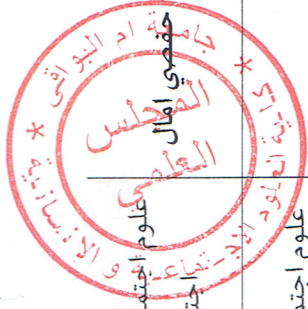 جامعة ام البواقي * كلية العلوم الاجتماعية و الانسانية *
المجلس
العلمي
حفصي امال
علوم اجتم
علوم اجتم